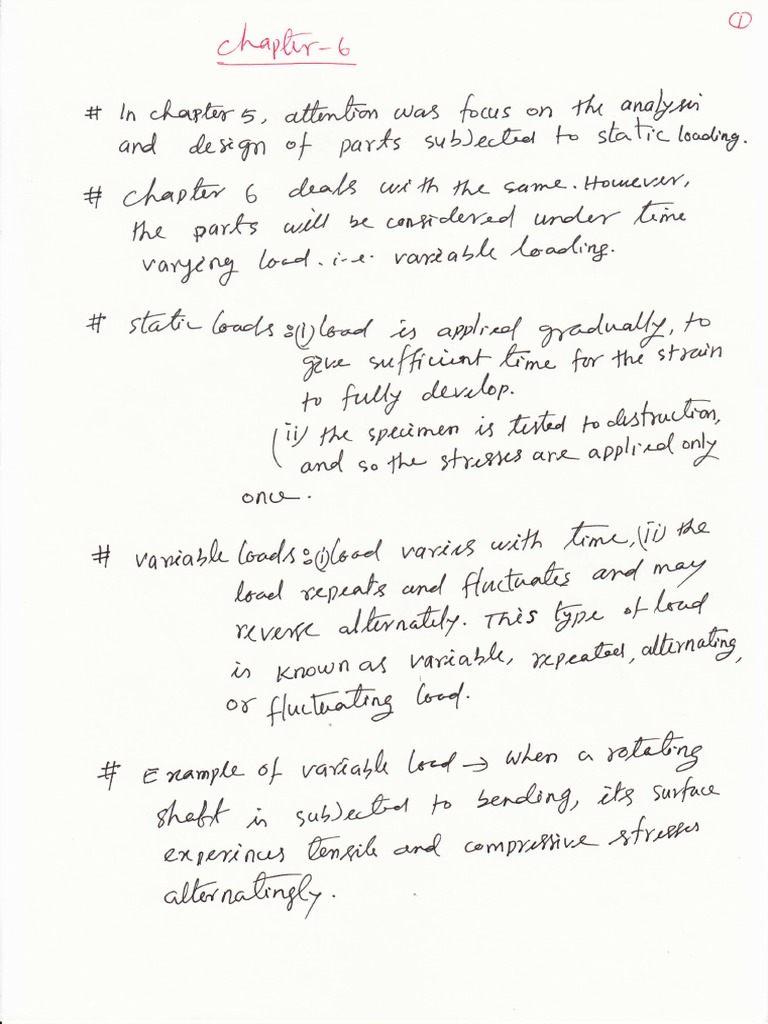 ①
Chapter-6
# In chapter 5, attention was focus on the analysis
and design of parts subjected to static loading.
# Chapter 6 deals with the same. However,
the parts will be considered under time
varying load. i-e. variable loading.
# static loads :(i) load is applied gradually, to
give sufficient time for the strain
to fully develop.
(ii) the specimen is tested to distruction,
and so the stresses are applied only
once.
# variable loads :(i) load varies with time, (ii) the
load repeats and fluctuates and may
reverse alternately. This type of load
is known as variable, repeated, alternating,
or fluctuating load.
# Example of variable load → when a rotating
shaft is subjected to bending, its surface
experinces tensile and compressive stresses
alternatingly.